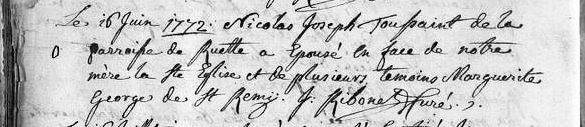 Le 16 Juin 1772. Nicolas Joseph Toussaint de la
o parroisse de Ruette a Epousé en face de notre
mère la Ste Eglise et de plusieurs temoins Marguerite
George de St Remij. J. Ribonet Curé.